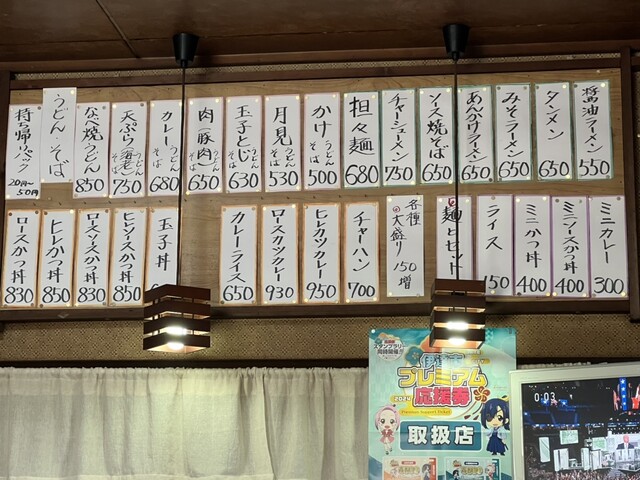 醤油ラーメン 550
タンメン 650
みそラーメン 650
あんかけラーメン 650
ソース焼そば 650
チャーシューメン 750
担々麺 680
かけ うどん そば 500
月見 うどん そば 530
玉子とじ うどん そば 630
肉(豚肉) うどん そば 650
カレー うどん そば 680
天ぷら(海老) うどん そば 750
なべ焼うどん 850
うどん そば
持ち帰りパック 20円〜50円
ミニカレー 300
ミニソースかつ丼 400
ミニかつ丼 400
ライス 150
の麺とセット
各種の大盛り 150増
チャーハン 700
ヒレカツカレー 950
ロースカツカレー 930
カレーライス 650
玉子丼
ヒレソースかつ丼 850
ロースソースかつ丼 830
ヒレかつ丼 850
ロースかつ丼 830
スタンプラリー
同時開催!!
プレミアム
応援券
2024
Premium Support Ticket
取扱店
0:03